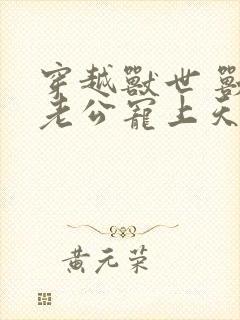 穿越獸世 獸
老公寵上天
黄元荣